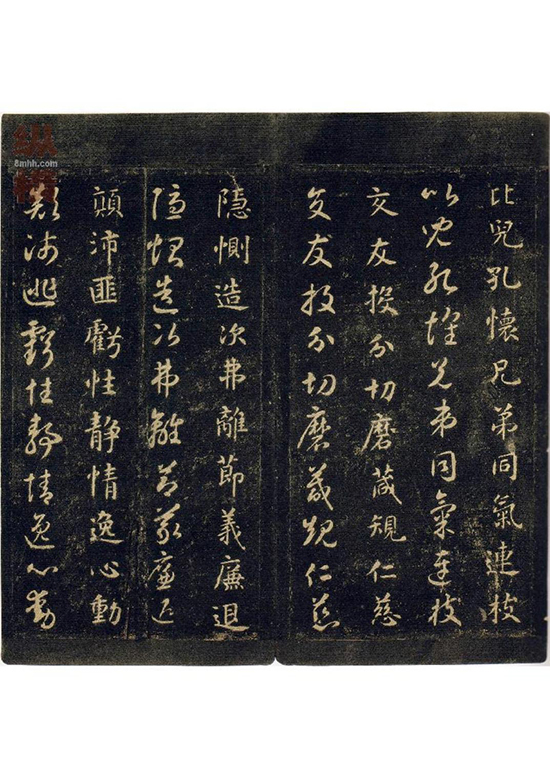 比兒孔懷兄弟同氣連枝
比兒孔懷兄弟同氣連枝
交友投分切磨箴規仁慈
交友投分切磨箴規仁慈
隱惻造次弗離節義廉退
隱惻造次弗離節義廉退
顛沛匪虧性靜情逸心動
顛沛匪虧性靜情逸心動
纵横
8mhh.com